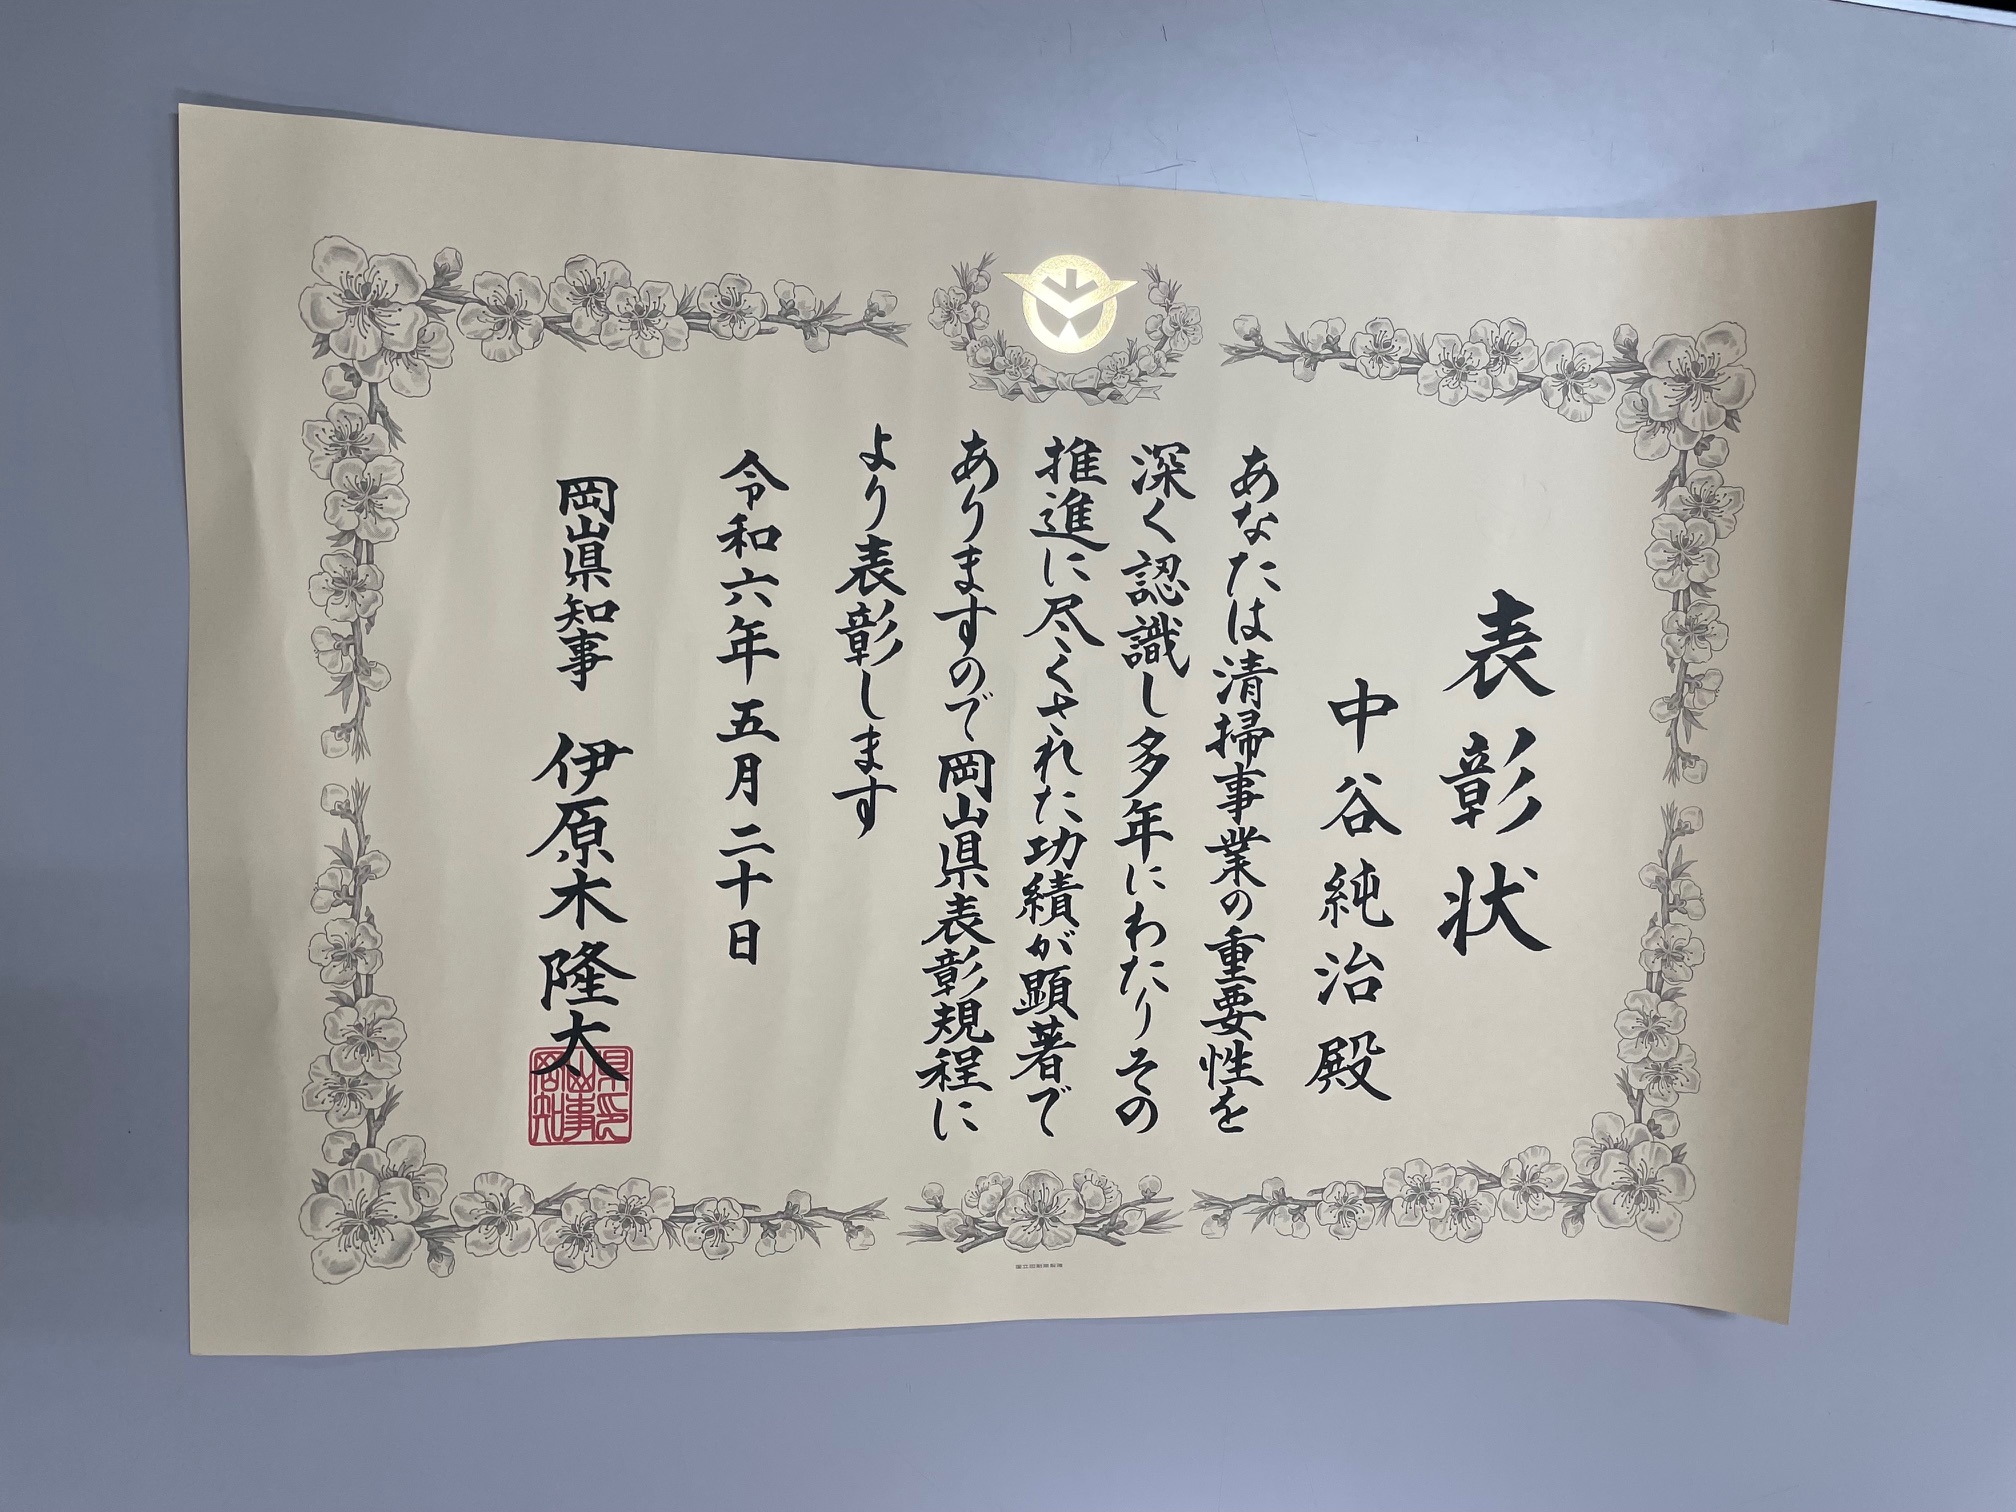 表彰状
中谷純治殿
あなたは清掃事業の重要性を
深く認識し多年にわたりその
推進に尽くされた功績が顕著で
ありますので岡山県表彰規程に
より表彰します
令和六年五月二十日
岡山県知事 伊原木隆太
岡山県知事印
国立印刷局製造